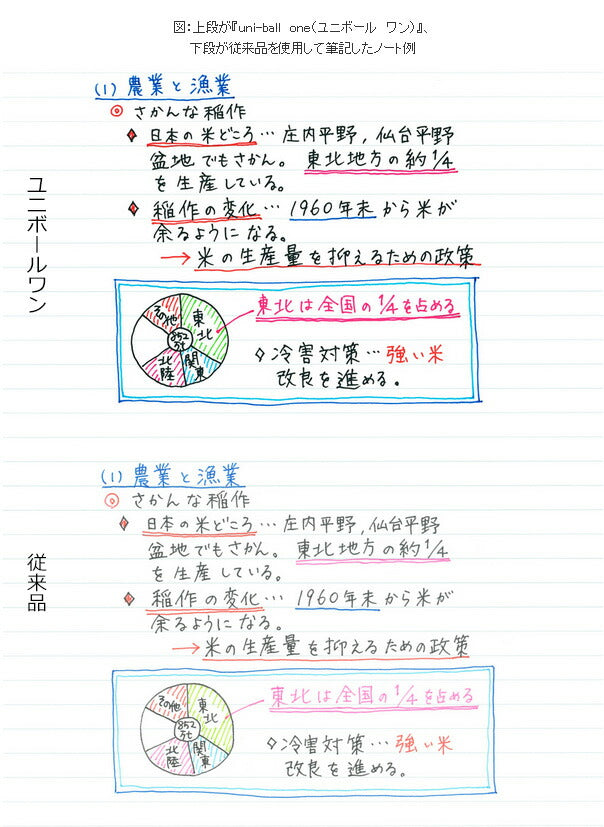 図：上段が『uni-ball one(ユニボール ワン)』、
下段が従来品を使用して筆記したノート例
ユニボールワン
(1) 農業と漁業
◎ さかんな稲作
♦ 日本の米どころ… 庄内平野, 仙台平野
盆地でもさかん。 東北地方の約1/4
を生産している。
♦ 稲作の変化… 1960年末から米が
余るようになる。
→ 米の生産量を抑えるための政策
その他
東北
852万t
北陸
関東
東北は全国の1/4を占める
◇冷害対策…強い米
改良を進める。
従来品
(1) 農業と漁業
◎ さかんな稲作
♦ 日本の米どころ… 庄内平野, 仙台平野
盆地でもさかん。 東北地方の約1/4
を生産している。
♦ 稲作の変化… 1960年末から米が
余るようになる。
→ 米の生産量を抑えるための政策
その他
東北
852万t
北陸
関東
東北は全国の1/4を占める
◇冷害対策…強い米
改良を進める。